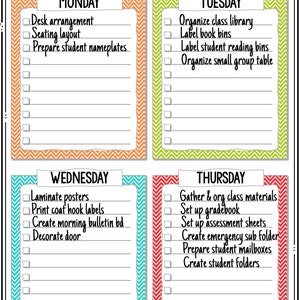 MONDAY
Desk arrangement
Seating layout
Prepare student nameplates
TUESDAY
Organize class library
Label book bins
Label student reading bins
Organize small group table
WEDNESDAY
Laminate posters
Print coat hook labels
Create morning bulletin bd
Decorate door
THURSDAY
Gather & org class materials
Set up gradebook
Set up assessment sheets
Create emergency sub folder
Prepare student mailboxes
Create student folders